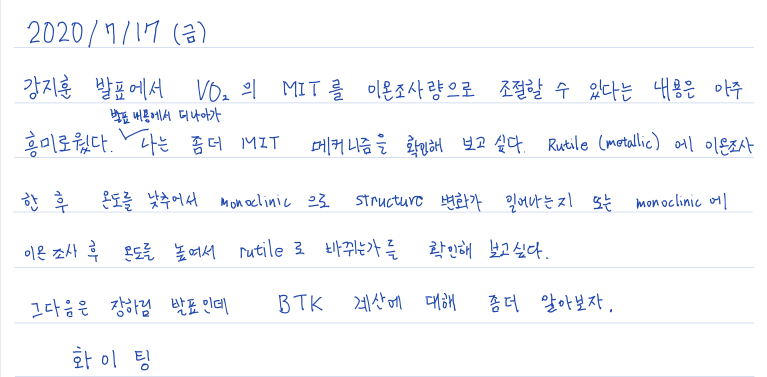 2020/7/17 (금)
강지훈 발표에서 VO₂ 의 MIT를 이온조사량으로 조절할 수 있다는 내용은 아주
발표 내용에서 더 나아가
흥미로웠다. 나는 좀더 MIT 메커니즘을 확인해 보고 싶다. Rutile (metallic) 에 이온조사
한 후 온도를 낮추어서 monoclinic 으로 structure 변화가 일어나는지 또는 monoclinic 에
이온 조사 후 온도를 높여서 rutile 로 바뀌는가를 확인해 보고싶다.
그다음은 장하림 발표인데 BTK 계산에 대해 좀더 알아보자.
화이팅